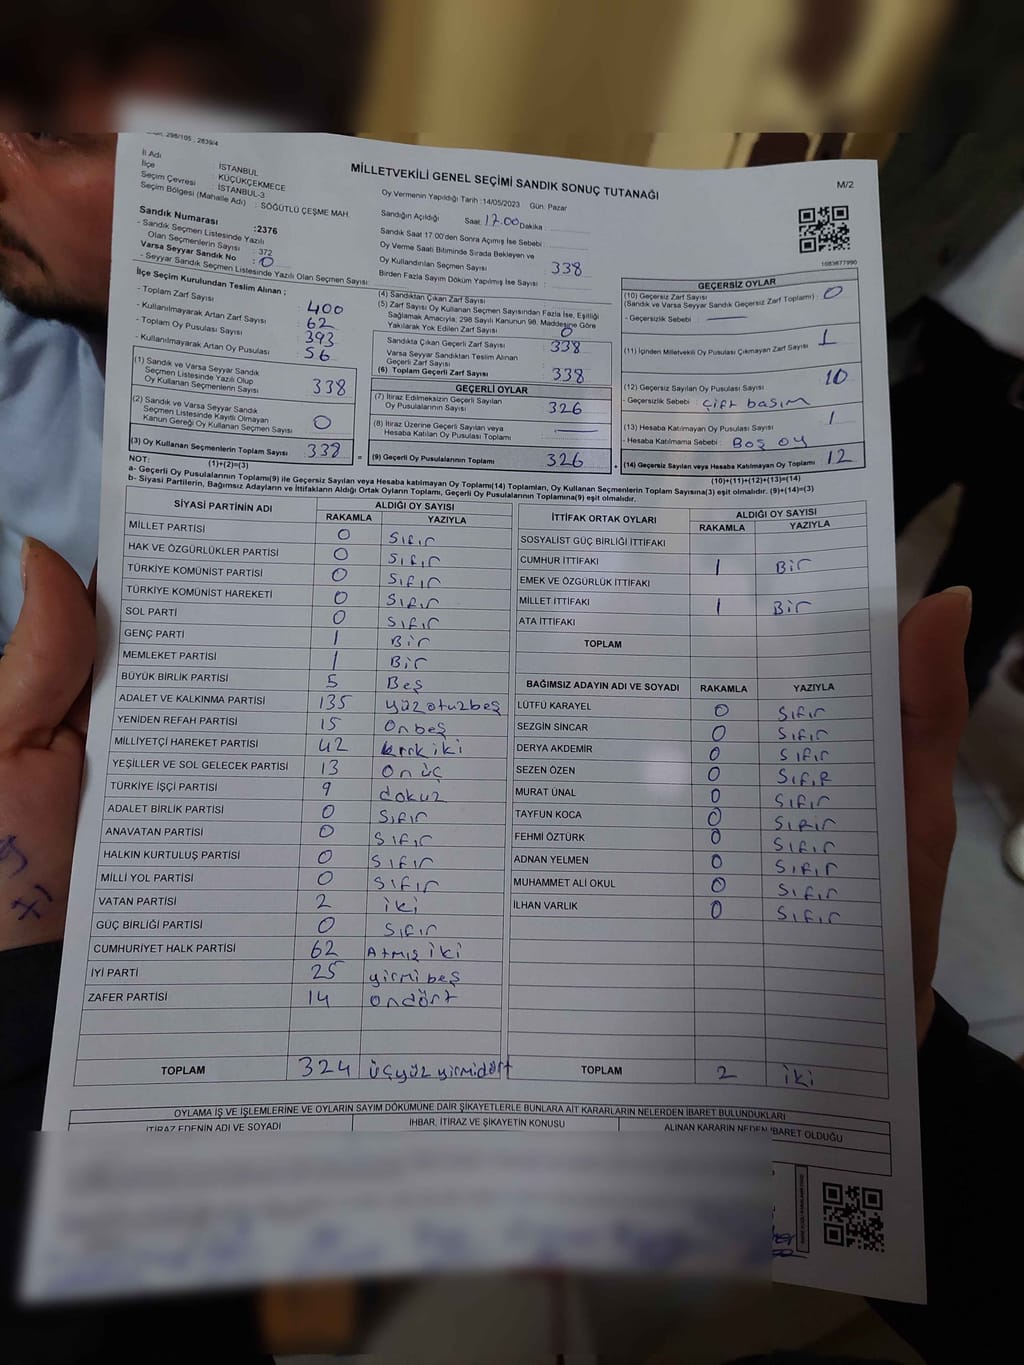 298/105 , 2839/4
MİLLETVEKİLİ GENEL SEÇİMİ SANDIK SONUÇ TUTANAĞI
M/2
İl Adı : İSTANBUL
İlçe : KÜÇÜKÇEKMECE
Seçim Çevresi : İSTANBUL-3
Seçim Bölgesi (Mahalle Adı) : SÖĞÜTLÜ ÇEŞME MAH.
Sandık Numarası :2376
- Sandık Seçmen Listesinde Yazılı
Olan Seçmenlerin Sayısı : 372
Varsa Seyyar Sandık No : 0
- Seyyar Sandık Seçmen Listesinde Yazılı Olan Seçmen Sayısı:
Oy Vermenin Yapıldığı Tarih :14/05/2023 Gün: Pazar
Sandığın Açıldığı Saat: 17.00 Dakika
Sandık Saat 17:00'den Sonra Açımış İse Sebebi :
Oy Verme Saati Bitiminde Sırada Bekleyen ve
Oy Kullandırılan Seçmen Sayısı 338
Birden Fazla Sayım Döküm Yapılmış İse Sayısı :
1083677990
İlçe Seçim Kurulundan Teslim Alınan ;
- Toplam Zarf Sayısı : 400
- Kullanılmayarak Artan Zarf Sayısı : 62
- Toplam Oy Pusulası Sayısı : 393
- Kullanılmayarak Artan Oy Pusulası : 56
(1) Sandık ve Varsa Seyyar Sandık
Seçmen Listesinde Yazılı Olup
Oy Kullanan Seçmenlerin Sayısı 338
(2) Sandık ve Varsa Seyyar Sandık
Seçmen Listesinde Kayıtlı Olmayan
Kanun Gereği Oy Kullanan Seçmen Sayısı 0
(3) Oy Kullanan Seçmenlerin Toplam Sayısı 338
(1)+(2)=(3)
(4) Sandıktan Çıkan Zarf Sayısı
(5) Zarf Sayısı Oy Kullanan Seçmen Sayısından Fazla İse, Eşitliği
Sağlamak Amacıyla; 298 Sayılı Kanunun 98. Maddesine Göre
Yakılarak Yok Edilen Zarf Sayısı 0
Sandıkta Çıkan Geçerli Zarf Sayısı 338
Varsa Seyyar Sandıktan Teslim Alınan
Geçerli Zarf Sayısı
(6) Toplam Geçerli Zarf Sayısı 338
GEÇERLİ OYLAR
(7) İtiraz Edilmeksizin Geçerli Sayılan
Oy Pusulalarının Sayısı 326
(8) İtiraz Üzerine Geçerli Sayılan veya
Hesaba Katılan Oy Pusulası Toplamı —
= (9) Geçerli Oy Pusulalarının Toplamı 326
GEÇERSİZ OYLAR
(10) Geçersiz Zarf Sayısı
(Sandık ve Varsa Seyyar Sandık Geçersiz Zarf Toplamı) : 0
- Geçersizlik Sebebi : —
(11) İçinden Milletvekili Oy Pusulası Çıkmayan Zarf Sayısı 1
(12) Geçersiz Sayılan Oy Pusulası Sayısı 10
- Geçersizlik Sebebi : Çift basım
(13) Hesaba Katılmayan Oy Pusulası Sayısı 1
- Hesaba Katılmama Sebebi : Boş oy
+ (14) Geçersiz Sayılan veya Hesaba Katılmayan Oy Toplamı 12
(10)+(11)+(12)+(13)=(14)
NOT:
a- Geçerli Oy Pusulalarının Toplamı(9) ile Geçersiz Sayılan veya Hesaba Katılmayan Oy Toplamı(14) Toplamları, Oy Kullanan Seçmenlerin Toplam Sayısına(3) eşit olmalıdır. (9)+(14)=(3)
b- Siyasi Partilerin, Bağımsız Adayların ve İttifakların Aldığı Ortak Oyların Toplamı, Geçerli Oy Pusulalarının Toplamına(9) eşit olmalıdır.
SİYASİ PARTİNİN ADI ALDIĞI OY SAYISI
RAKAMLA YAZIYLA
MİLLET PARTİSİ 0 Sıfır
HAK VE ÖZGÜRLÜKLER PARTİSİ 0 Sıfır
TÜRKİYE KOMÜNİST PARTİSİ 0 Sıfır
TÜRKİYE KOMÜNİST HAREKETİ 0 Sıfır
SOL PARTİ 0 Sıfır
GENÇ PARTİ 1 Bir
MEMLEKET PARTİSİ 1 Bir
BÜYÜK BİRLİK PARTİSİ 5 Beş
ADALET VE KALKINMA PARTİSİ 135 yüzotuzbeş
YENİDEN REFAH PARTİSİ 15 Onbeş
MİLLİYETÇİ HAREKET PARTİSİ 42 kırk iki
YEŞİLLER VE SOL GELECEK PARTİSİ 13 on üç
TÜRKİYE İŞÇİ PARTİSİ 9 dokuz
ADALET BİRLİK PARTİSİ 0 Sıfır
ANAVATAN PARTİSİ 0 Sıfır
HALKIN KURTULUŞ PARTİSİ 0 Sıfır
MİLLİ YOL PARTİSİ 0 Sıfır
VATAN PARTİSİ 2 iki
GÜÇ BİRLİĞİ PARTİSİ 0 Sıfır
CUMHURİYET HALK PARTİSİ 62 Atmış iki
İYİ PARTİ 25 yirmibeş
ZAFER PARTİSİ 14 Ondört
TOPLAM 324 üçyüz yirmidört
İTTİFAK ORTAK OYLARI ALDIĞI OY SAYISI
RAKAMLA YAZIYLA
SOSYALİST GÜÇ BİRLİĞİ İTTİFAKI
CUMHUR İTTİFAKI 1 Bir
EMEK VE ÖZGÜRLÜK İTTİFAKI
MİLLET İTTİFAKI 1 Bir
ATA İTTİFAKI
TOPLAM
BAĞIMSIZ ADAYIN ADI VE SOYADI RAKAMLA YAZIYLA
LÜTFÜ KARAYEL 0 Sıfır
SEZGİN SİNCAR 0 Sıfır
DERYA AKDEMİR 0 Sıfır
SEZEN ÖZEN 0 Sıfır
MURAT ÜNAL 0 Sıfır
TAYFUN KOCA 0 Sıfır
FEHMİ ÖZTÜRK 0 Sıfır
ADNAN YELMEN 0 Sıfır
MUHAMMET ALİ OKUL 0 Sıfır
İLHAN VARLIK 0 Sıfır
TOPLAM 2 iki
OYLAMA İŞ VE İŞLEMLERİNE VE OYLARIN SAYIM DÖKÜMÜNE DAİR ŞİKAYETLERLE BUNLARA AİT KARARLARIN NELERDEN İBARET BULUNDUKLARI
İTİRAZ EDENİN ADI VE SOYADI İHBAR, İTİRAZ VE ŞİKAYETİN KONUSU ALINAN KARARIN NEDEN İBARET OLDUĞU